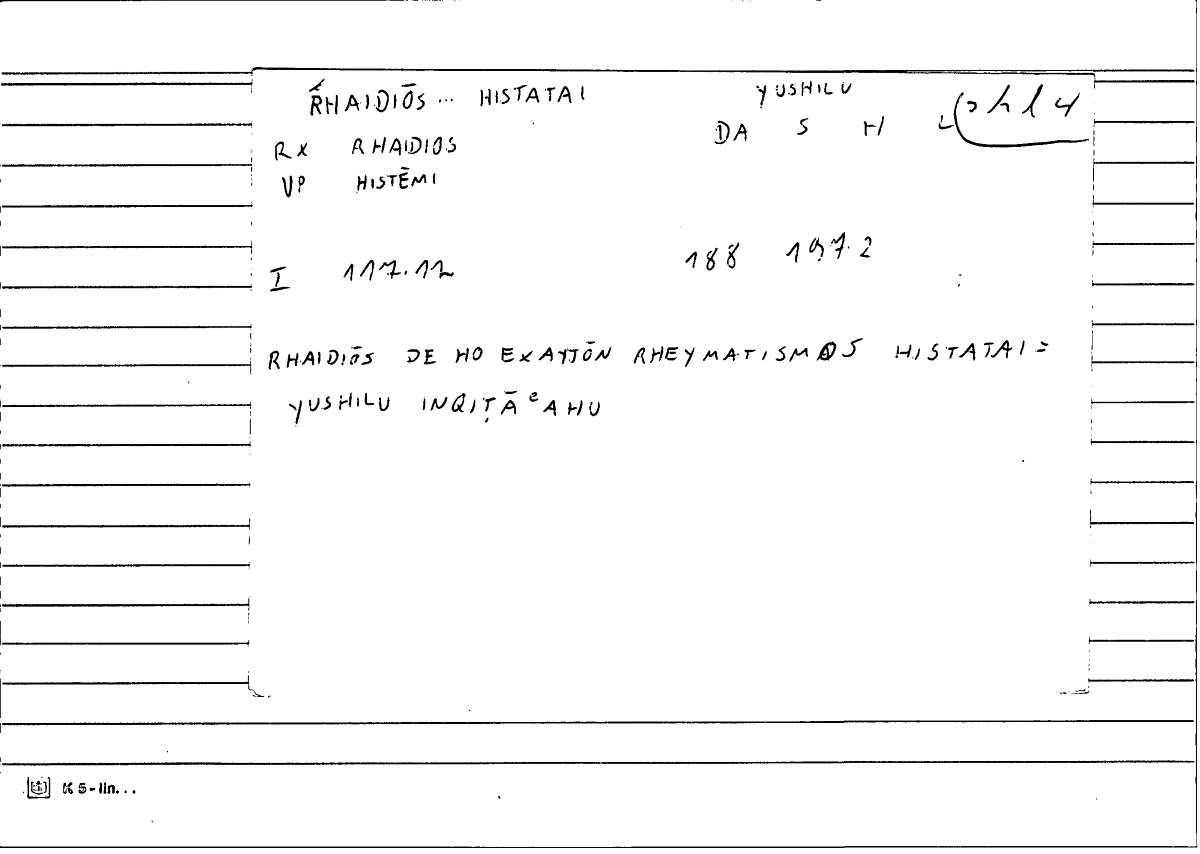 ŔHAIDIŌS ... HISTATAI YUSHILU
RX RHAIDIOS DA S H L shl 4
VP HISTĒMI
I 117.12 188 197.2
RHAIDIŌS DE HO EXAYTŌN RHEYMATISMOS HISTATAI =
YUSHILU INQIṬĀ ͨ AHU
K 5-lin...